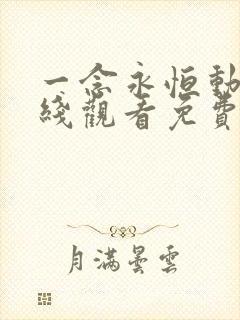 一念永恒動
綫觀看免費
月滿曇雲